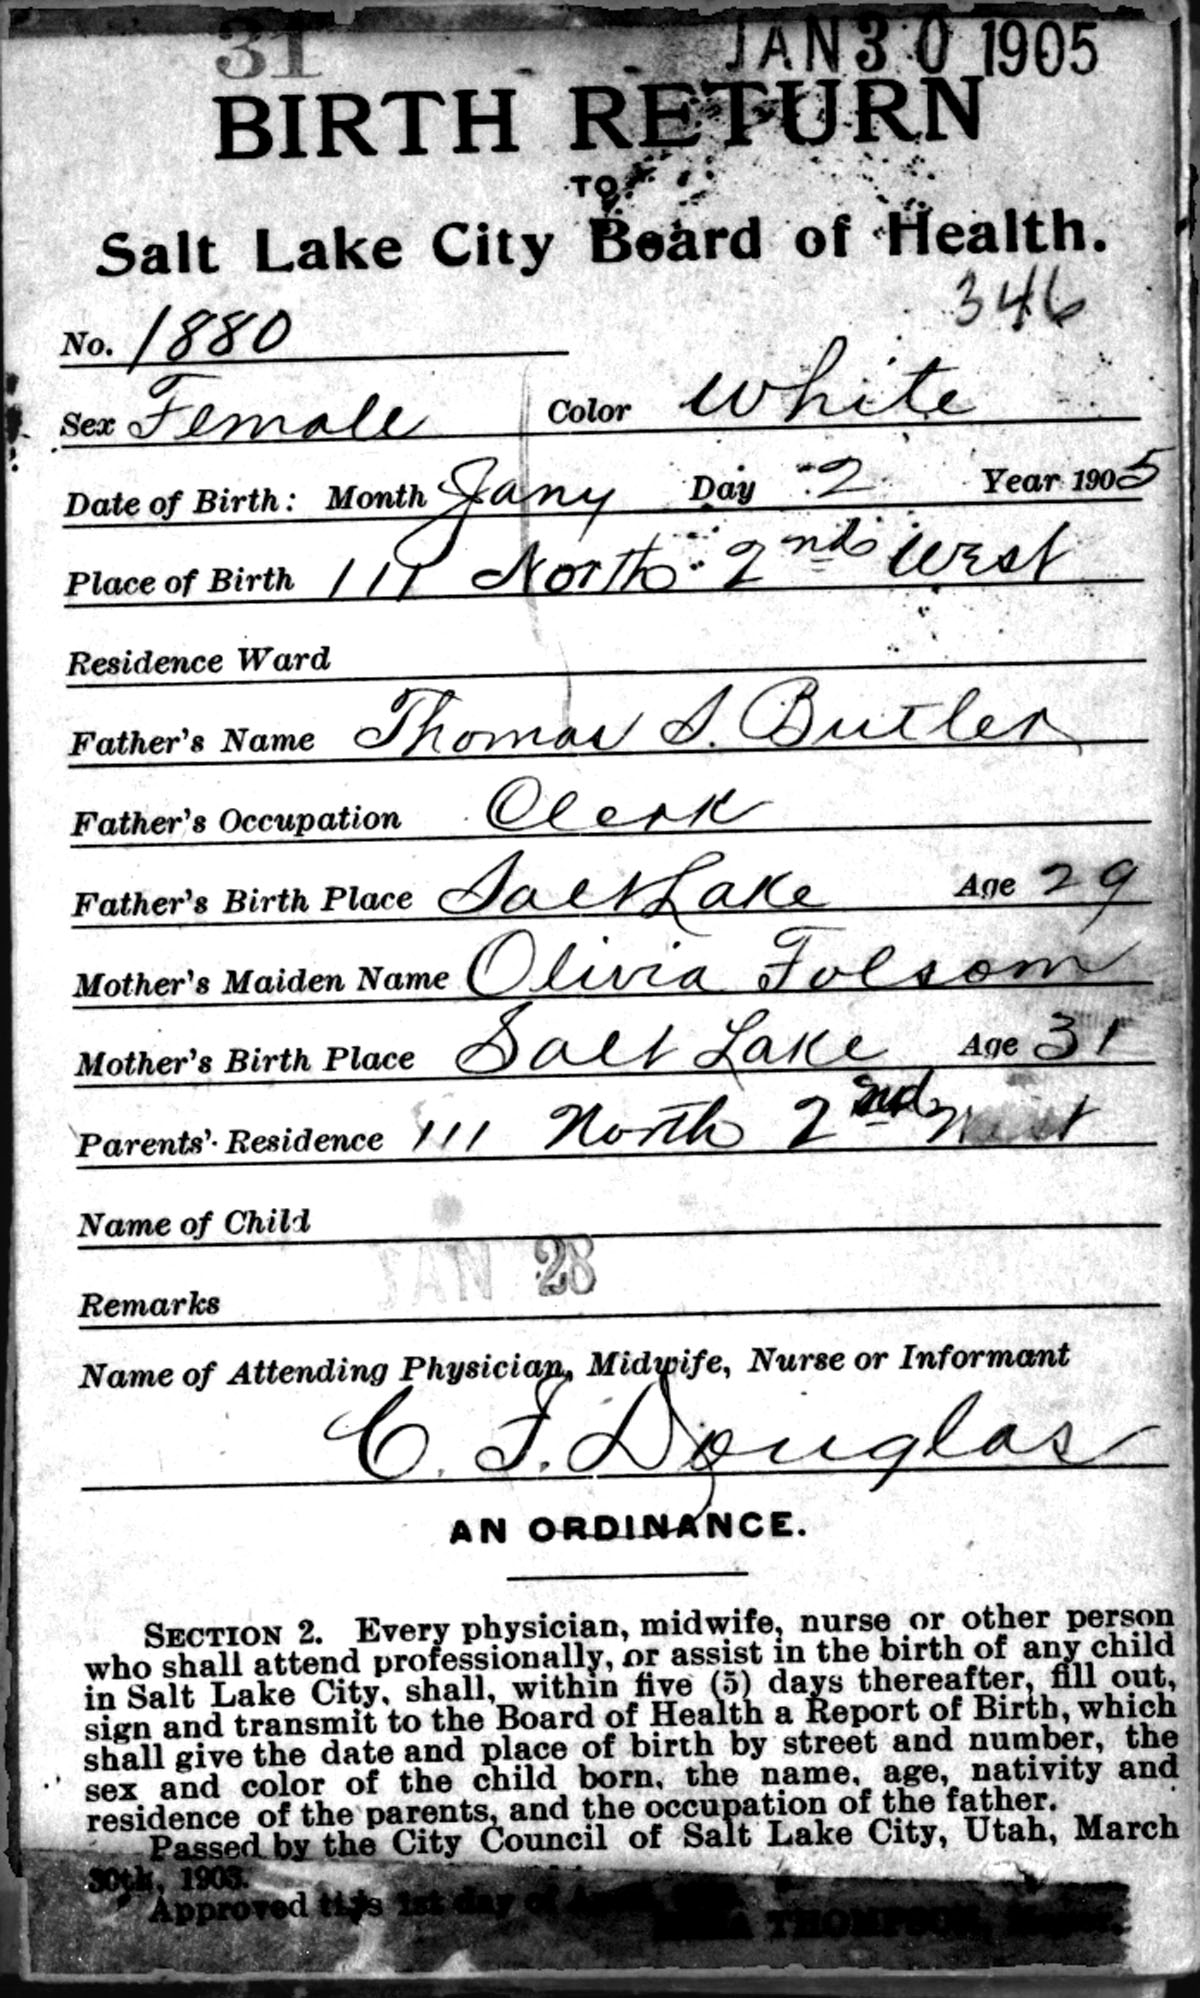 31 JAN 30 1905
BIRTH RETURN
TO
Salt Lake City Board of Health.
346
No. 1880
Sex Female Color White
Date of Birth: Month Jany Day 2 Year 1905
Place of Birth 111 North 2nd West
Residence Ward
Father's Name Thomas S. Butler
Father's Occupation Clerk
Father's Birth Place Salt Lake Age 29
Mother's Maiden Name Olivia Folsom
Mother's Birth Place Salt Lake Age 31
Parents' Residence 111 North 2nd West
Name of Child
JAN 28
Remarks
Name of Attending Physician, Midwife, Nurse or Informant
C. F. Douglas
AN ORDINANCE.
SECTION 2. Every physician, midwife, nurse or other person
who shall attend professionally, or assist in the birth of any child
in Salt Lake City, shall, within five (5) days thereafter, fill out,
sign and transmit to the Board of Health a Report of Birth, which
shall give the date and place of birth by street and number, the
sex and color of the child born, the name, age, nativity and
residence of the parents, and the occupation of the father.
Passed by the City Council of Salt Lake City, Utah, March
30th, 1903.
Approved this 1st day of
THOMPSON,